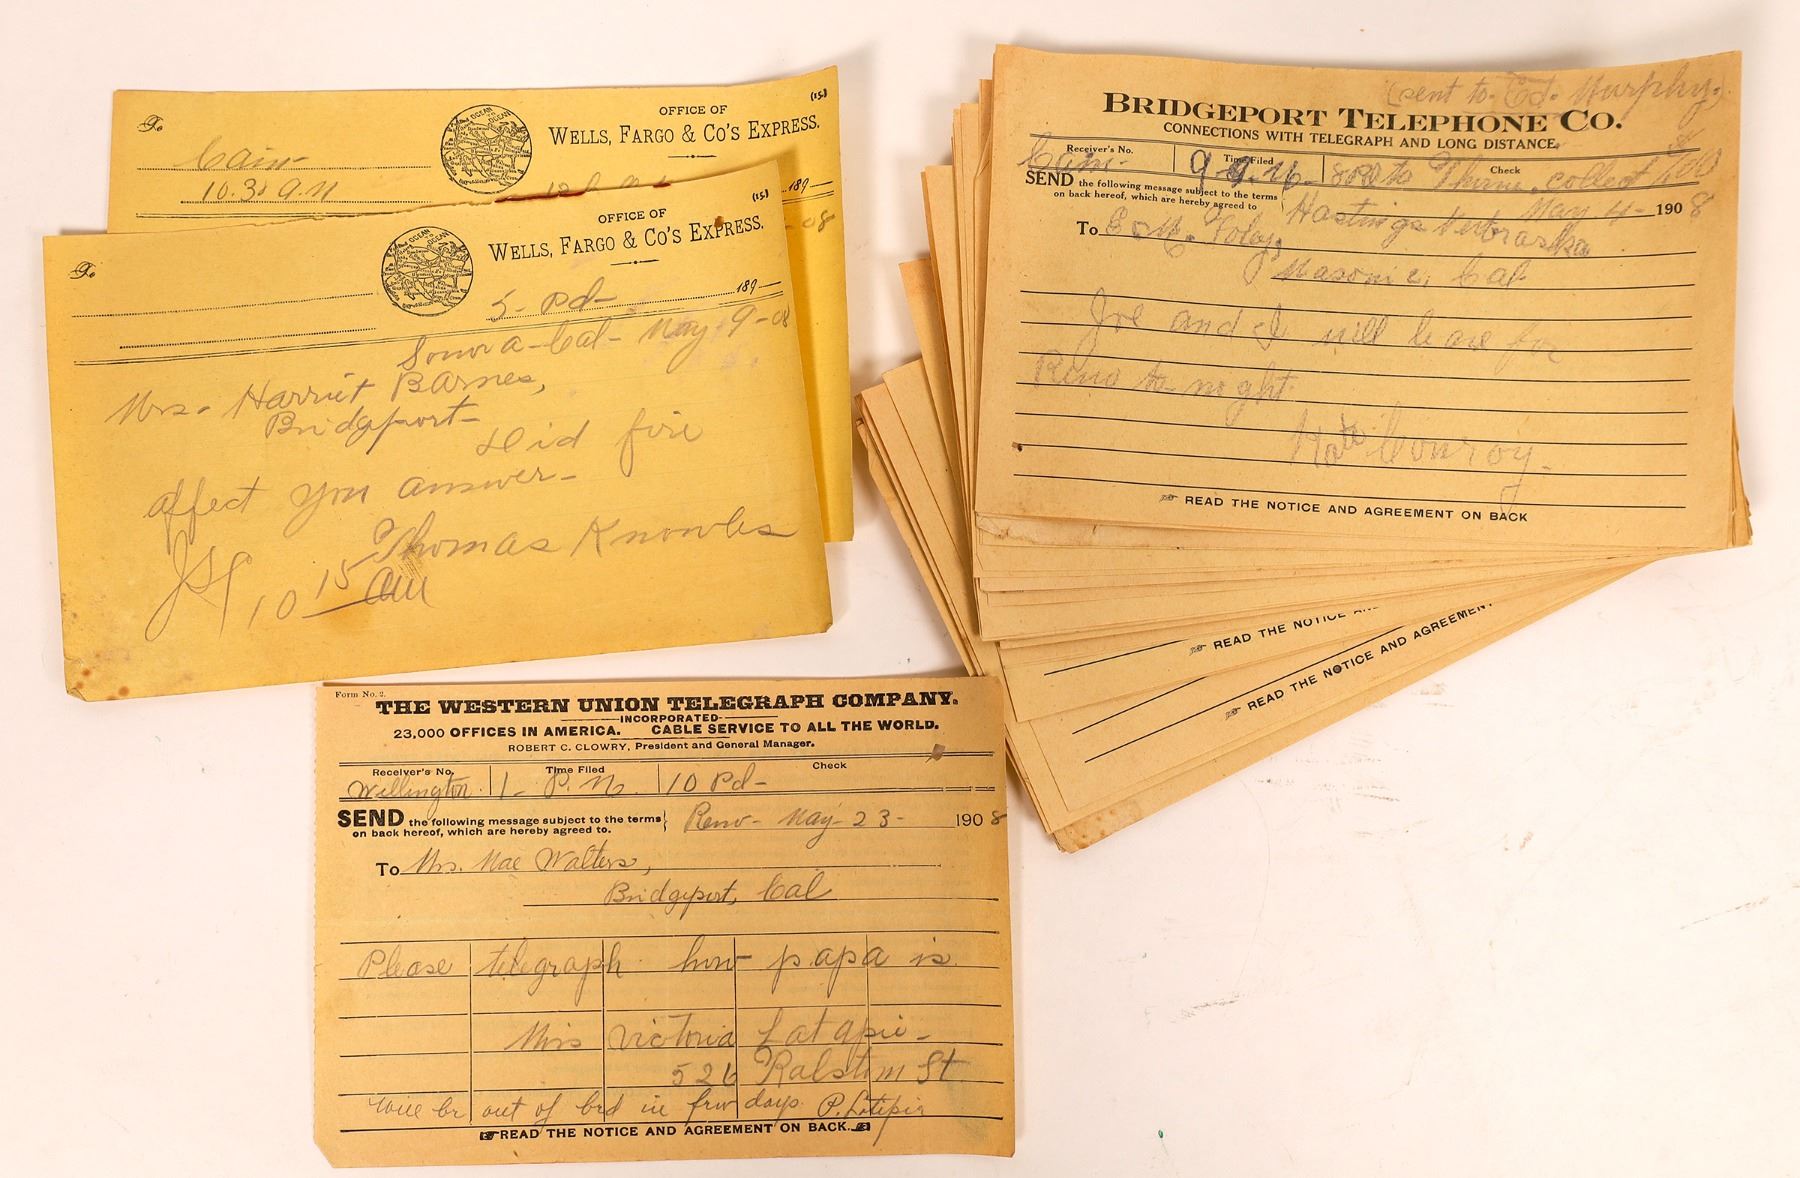 (15.)
To
OFFICE OF
WELLS, FARGO & CO'S EXPRESS.
Cain-
10.30 A.M
189
-08
(15.)
To
OFFICE OF
WELLS, FARGO & CO'S EXPRESS.
5- Pd- 189
Sonora-Cal- May 9-08
Mrs. Harriet Barnes,
Bridgeport-
Did fire
affect you answer-
Thomas Knowles
10 15 AM
(sent to Ed. Murphy.)
BRIDGEPORT TELEPHONE CO.
CONNECTIONS WITH TELEGRAPH AND LONG DISTANCE.
Receiver's No. Time Filed Check
Cain-
SEND the following message subject to the terms
on back hereof, which are hereby agreed to
Hastings Nebraska May 4- 1908
To
Masonic, Cal
Joe and I will leave for
Reno to-night.
Conroy-
READ THE NOTICE AND AGREEMENT ON BACK
READ THE NOTICE AN
READ THE NOTICE AND AGREEMENT
Form No. 2.
THE WESTERN UNION TELEGRAPH COMPANY.
INCORPORATED
23,000 OFFICES IN AMERICA. CABLE SERVICE TO ALL THE WORLD.
ROBERT C. CLOWRY, President and General Manager.
Receiver's No. Time Filed Check
Wellington 1- P.M. 10 Pd-
SEND the following message subject to the terms
on back hereof, which are hereby agreed to.
Reno- May- 23- 1908
To Mrs. Mae Walters,
Bridgeport, Cal
Please telegraph how papa is
Miss Victoria Latapie-
526 Ralston St
Will be out of bed in few days. P. Latipie
READ THE NOTICE AND AGREEMENT ON BACK.